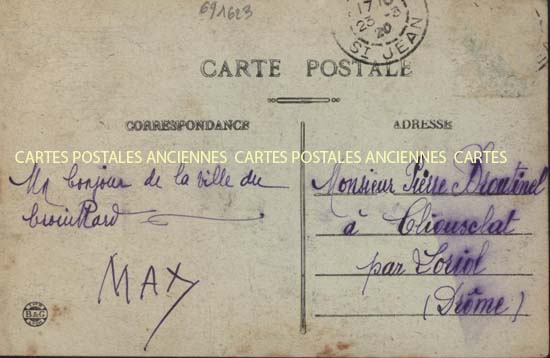 691623
17 10
23-3
20
ST JEAN
CARTE POSTALE
CORRESPONDANCE
ADRESSE
CARTES POSTALES ANCIENNES CARTES POSTALES ANCIENNES CARTES
Un bonjour de la ville du
brouillard
MAX
Monsieur Pierre
à Cliousclat
par Loriol
(Drôme)
B&G